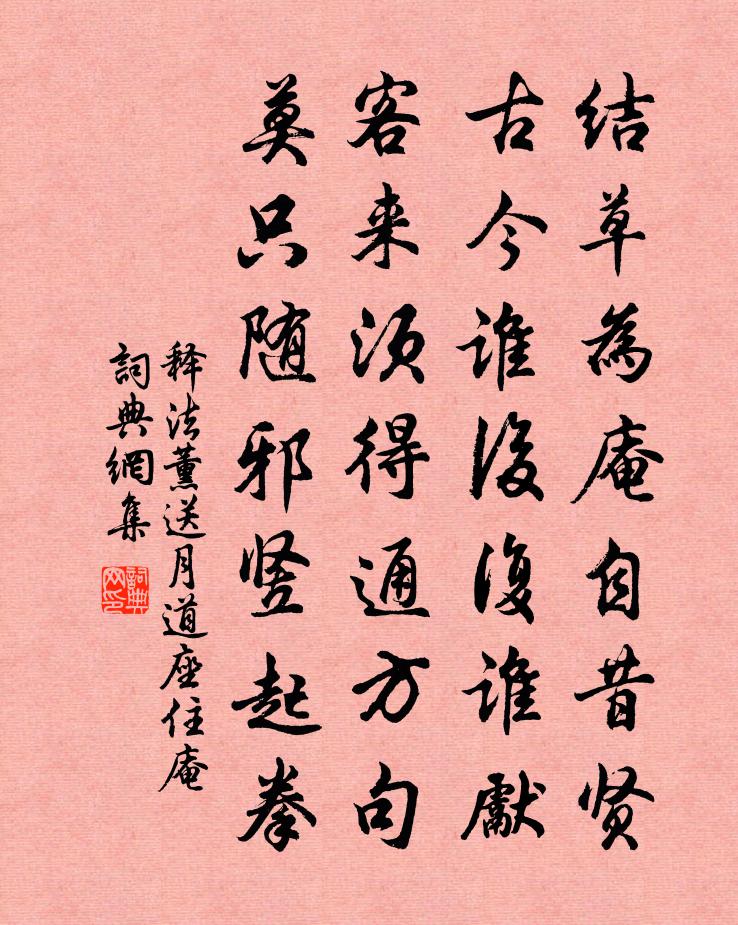 结草為庵自昔贤
古今谁後復谁獻
客来须得通方句
莫只随邪竖起拳
释法薰送月道座住庵
詞典網集
詞典网印